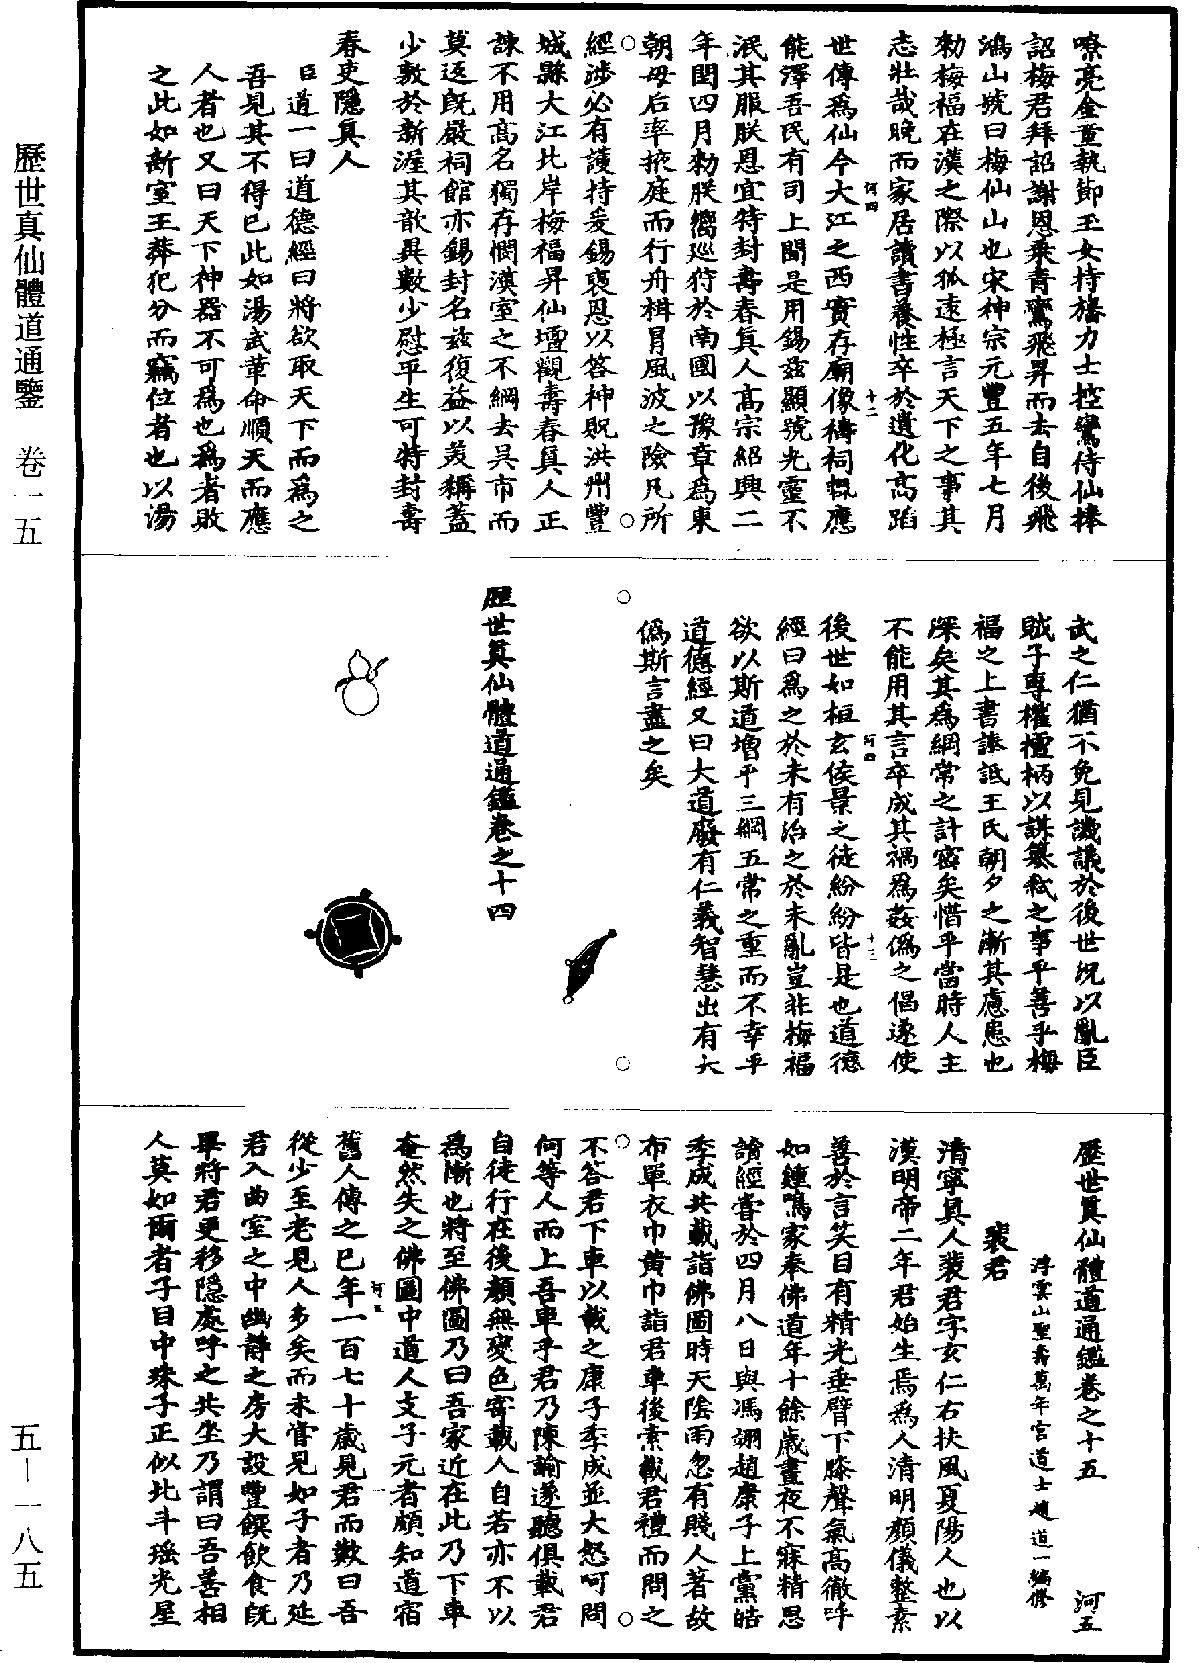 歷世真仙體道通鑒　卷一五
五—一八五
嘹亮金童執節玉女持旛力士控鸞侍仙捧
詔梅君拜詔謝恩乘青鸞飛昇而去自後飛
鴻山號曰梅仙山也宋神宗元豐五年七月
勑梅福在漢之際以孤遠極言天下之事其
志壯哉晚而家居讀書養性卒於遺化高蹈
河四
十二
世傳為仙今大江之西實存廟像禱祠輒應
能澤吾民有司上聞是用錫茲顯號光靈不
泯其服朕恩宜特封壽春真人高宗紹興二
年閏四月勑朕嚮巡狩於南國以豫章為東
朝母后率掖庭而行舟楫冒風波之險凡所
經涉必有護持爰錫褒恩以答神貺洪州豐
城縣大江北岸梅福昇仙壇觀壽春真人正
諫不用高名獨存憫漢室之不綱去吳市而
莫返既嚴祠館亦錫封名茲復益以美稱蓋
少敷於新渥其歆異數少慰平生可特封壽
春吏隱真人
臣道一曰道德經曰將欲取天下而為之
吾見其不得已此如湯武革命順天而應
人者也又曰天下神器不可為也為者敗
之此如新室王莽犯分而竊位者也以湯
武之仁猶不免見譏議於後世況以亂臣
賊子專權擅柄以謀篡弒之事乎善乎梅
福之上書誅詆王氏朝夕之漸其慮患也
深矣其為綱常之計審矣惜乎當時人主
不能用其言卒成其禍為姦偽之倡遂使
河四
十三
後世如桓玄侯景之徒紛紛皆是也道德
經曰為之於未有治之於未亂豈非梅福
欲以斯道增乎三綱五常之重而不幸乎
道德經又曰大道廢有仁義智慧出有大
偽斯言盡之矣
歷世真仙體道通鑑卷之十四
歷世真仙體道通鑑卷之十五　河五
浮雲山聖壽萬年宮道士趙道一編修
裴君
清寧真人裴君字玄仁右扶風夏陽人也以
漢明帝二年君始生焉為人清明顏儀整素
善於言笑目有精光垂臂下膝聲氣高徹呼
如鐘鳴家奉佛道年十餘歲晝夜不寐精思
讀經嘗於四月八日與馮翊趙康子上黨皓
季成共載詣佛圖時天陰雨忽有賤人著故
布單衣巾黃巾詣君車後索載君禮而問之
不答君下車以載之康子季成並大怒呵問
何等人而上吾車乎君乃陳諭遂聽俱載君
自徒行在後顏無變色寄載人自若亦不以
為慚也將至佛圖乃曰吾家近在此乃下車
奄然失之佛圖中道人支子元者頗知道宿
河五
一
舊人傳之已年一百七十歲見君而歎曰吾
從少至老見人多矣而未嘗見如子者乃延
君入曲室之中幽靜之房大設豐饌飲食既
畢將君更移隱處呼之共坐乃謂曰吾善相
人莫如爾者子目中珠子正似北斗瑤光星